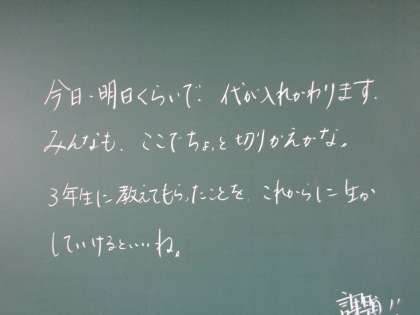 今日・明日くらいで、代が入れかわります.
みんなも、ここでちょっと切りかえかな。
3年生に教えてもらったことを、これからに生か
していけるといいね。
課題!!